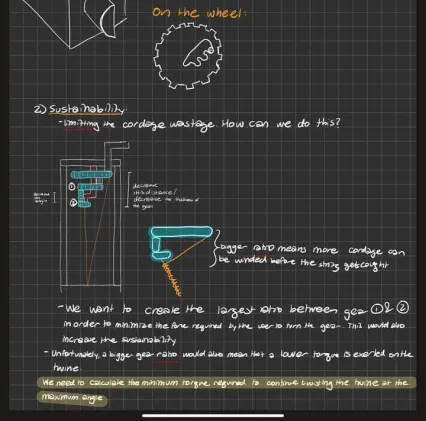 On the wheel:
2) Sustainability:
- Limiting the cordage wastage. How can we do this?
①
②
decrease this distance/
decrease the thickness of
the gears
bigger ratio means more cordage can
be winded before the string gets caught
- We want to create the largest ratio between gear ① & ②
in order to minimize the force required by the user to turn the gear. This would also
increase the sustainability
- Unfortunately, a bigger gear ratio would also mean that a lower torque is exerted on the
twine.
We need to calculate the minimum torque required to continue twisting the twine at the
maximum angle